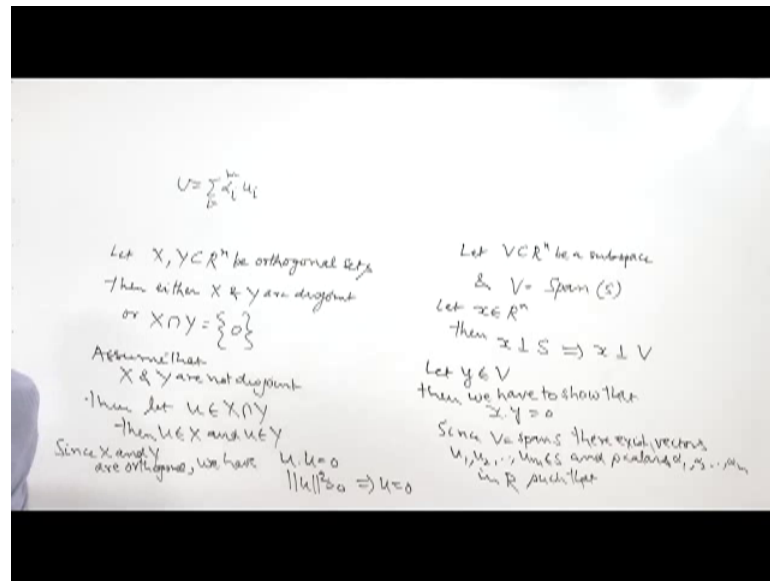 U = Σ αᵢ uᵢ
Let X, Y ⊂ Rⁿ be orthogonal sets
then either X & Y are disjoint
or X ∩ Y = {0}
Assume that
X & Y are not disjoint
Then let u ∈ X ∩ Y
Then u ∈ X and u ∈ Y
Since X and Y
are orthogonal, we have u.u=0
||u||²=0 ⇒ u=0
Let V ⊂ Rⁿ be a subspace
& V = Span (S)
Let x ∈ Rⁿ
then x ⊥ S ⇒ x ⊥ V
Let y ∈ V
then we have to show that
x.y = 0
Since V = span S there exist vectors
u₁, u₂, .., uₘ ∈ S and scalars α₁, α₂, .., αₘ
in R such that